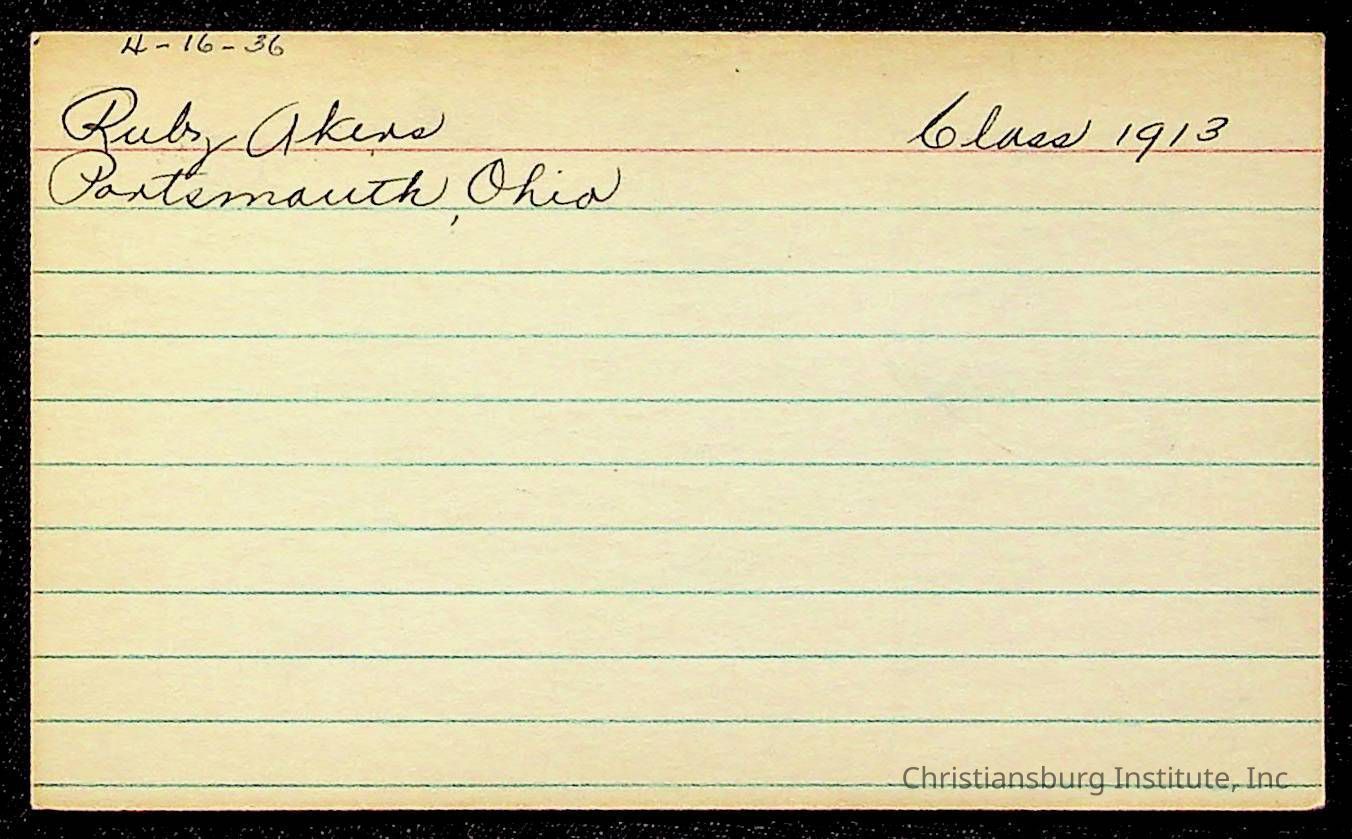 4-16-36
Ruby Akers Class 1913
Portsmouth, Ohio
Christiansburg Institute, Inc